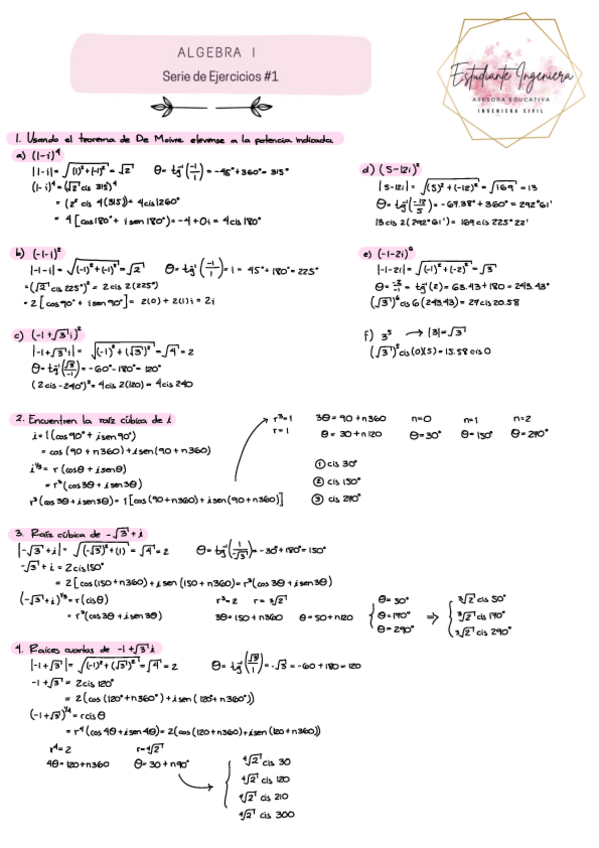 ALGEBRA I
Serie de Ejercicios #1
Estudiante Ingeniera
ASESORA EDUCATIVA
INGENIERA CIVIL
1. Usando el teorema de De Moivre elevense a la potencia indicada
a) (1-i)⁴
|1-i| = √(1)²+(-1)² = √2 θ = tg⁻¹(-1/1) = -45°+360° = 315°
(1-i)⁴ = (√2 cis 315)⁴
= (2² cis 4(315)) = 4cis1260°
= 4[cos180° + i sen 180°) = -4 + 0i = 4cis 180°
b) (-1-i)²
|-1-i| = √(-1)²+(-1)² = √2 θ = tg⁻¹(-1/-1) = 1 = 45°+180° = 225°
= (√2 cis 225°)² = 2cis 2(225°)
= 2[cos90° + i sen90°] = 2(0) + 2(1)i = 2i
c) (-1+√3 i)²
|-1+√3 i| = √(-1)²+(√3)² = √4 = 2
θ = tg⁻¹(√3/-1) = -60°-180° = 120°
(2cis-240°)² = 4cis 2(120) = 4cis 240
d) (5-12i)²
|5-12i| = √(5)²+(-12)² = √169 = 13
θ = tg⁻¹(-12/5) = -67.38° + 360° = 292°61'
13cis 2(292°61') = 169cis 225°22'
e) (-1-2i)⁶
|-1-2i| = √(-1)²+(-2)² = √3
θ = -2/-1 = tg⁻¹(2) = 63.43+180 = 243.43°
(√3)⁶ cis 6(243.43) = 27cis 20.58
f) 3⁵ → |3| = √3
(√3)⁵ cis(0)(5) = 15.58cis0
2. Encuentren la raíz cúbica de i
i = 1(cos90° + i sen90°)
= cos(90 + n360) + i sen(90 + n360)
i^1/3 = r(cosθ + i senθ)
= r³(cos3θ + i sen3θ)
r³(cos3θ + i sen3θ) = 1[cos(90+n360) + i sen(90+n360)]
r³=1 3θ = 90 + n360 n=0 n=1 n=2
r=1 θ = 30 + n120 θ=30° θ=150° θ=270°
① cis 30°
② cis 150°
③ cis 270°
3. Raíz cúbica de -√3 + i
|-√3+i| = √(-√3)²+(1) = √4 = 2 θ = tg⁻¹(1/√3) = -30°+180° = 150°
-√3 + i = 2cis150°
= 2[cos(150+n360) + i sen(150+n360) = r³(cos3θ + i sen3θ)
(-√3+i)^1/3 = r(cisθ) r³=2 r=³√2
= r³(cos3θ + i sen3θ) 3θ = 150 + n360 θ = 50 + n120
θ = 50° ³√2 cis 50°
θ = 170° ⇒ ³√2 cis 170°
θ = 290° ³√2 cis 290°
4. Raíces cuartas de -1+√3 i
|-1+√3| = √(-1)²+(√3)² = √4 = 2 θ = tg⁻¹(√3/1) = -√3 = -60 + 180 = 120
-1+√3 = 2cis 120°
= 2(cos(120°+n360°) + i sen(120°+n360°))
(-1+√3)^1/4 = rcisθ
= r⁴(cos4θ + i sen4θ) = 2(cos(120+n360) + i sen(120+n360))
r⁴=2 r=⁴√2
4θ = 120+n360 θ = 30 + n90°
⁴√2 cis 30
⁴√2 cis 120
⁴√2 cis 210
⁴√2 cis 300